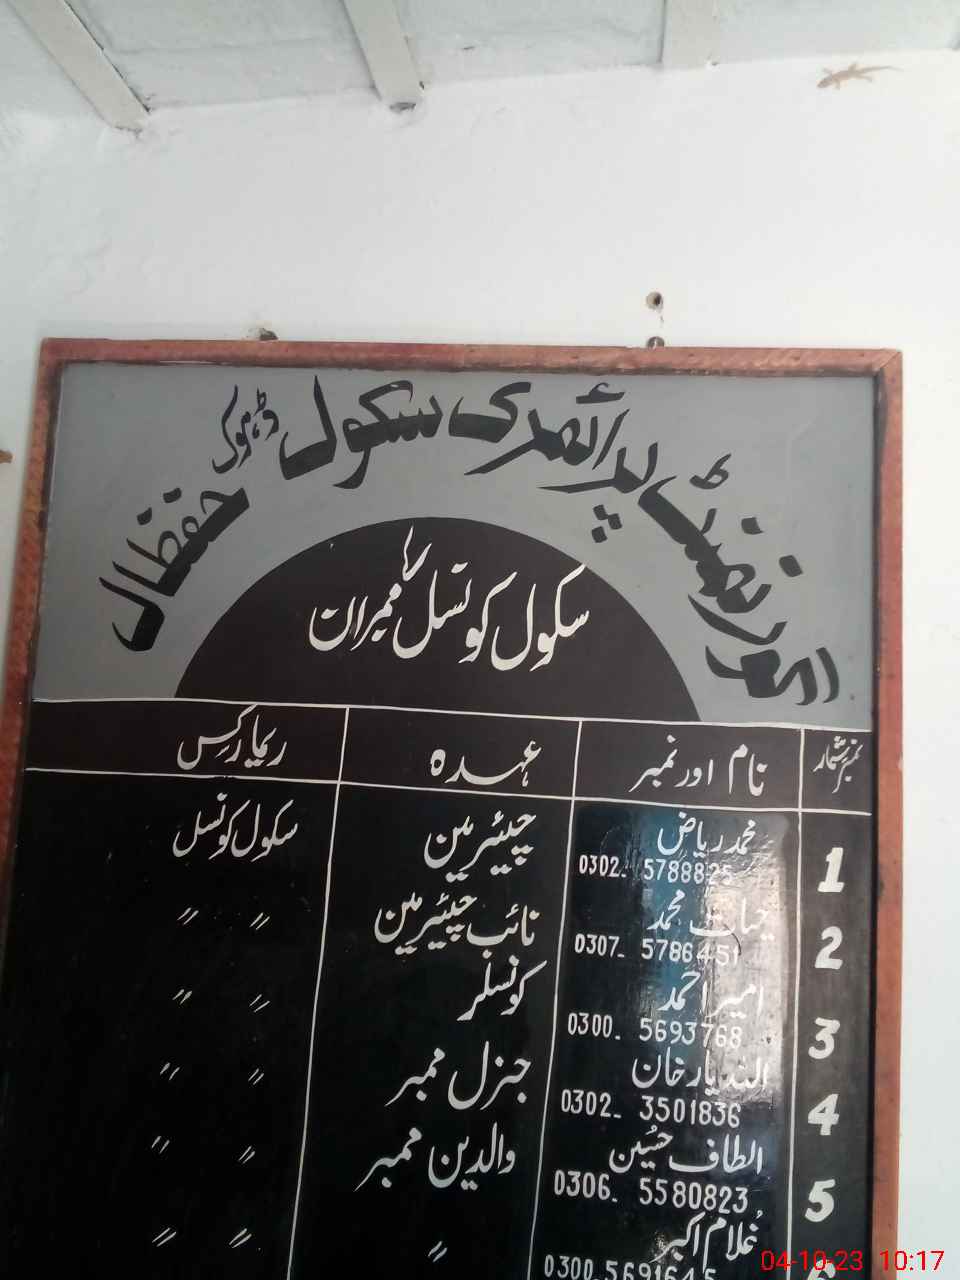 گورنمنٹ پرائمری سکول ڈھوک حفظال
سکول کونسل کا ممبران
نمبر شمار نام اور نمبر عہدہ ریمارکس
1 محمد ریاض چیئرمین سکول کونسل
0302- 5788825
2 حیات محمد نائب چیئرمین 〃 〃
0307- 5786451
3 امیر احمد کونسلر 〃 〃
0300- 5693768
4 الندیار خان جنرل ممبر 〃 〃
0302- 3501836
5 الطاف حسین والدین ممبر 〃 〃
0306- 5580823
غلام اکبر 〃 〃 〃
0300-569164
04-10-23 10:17